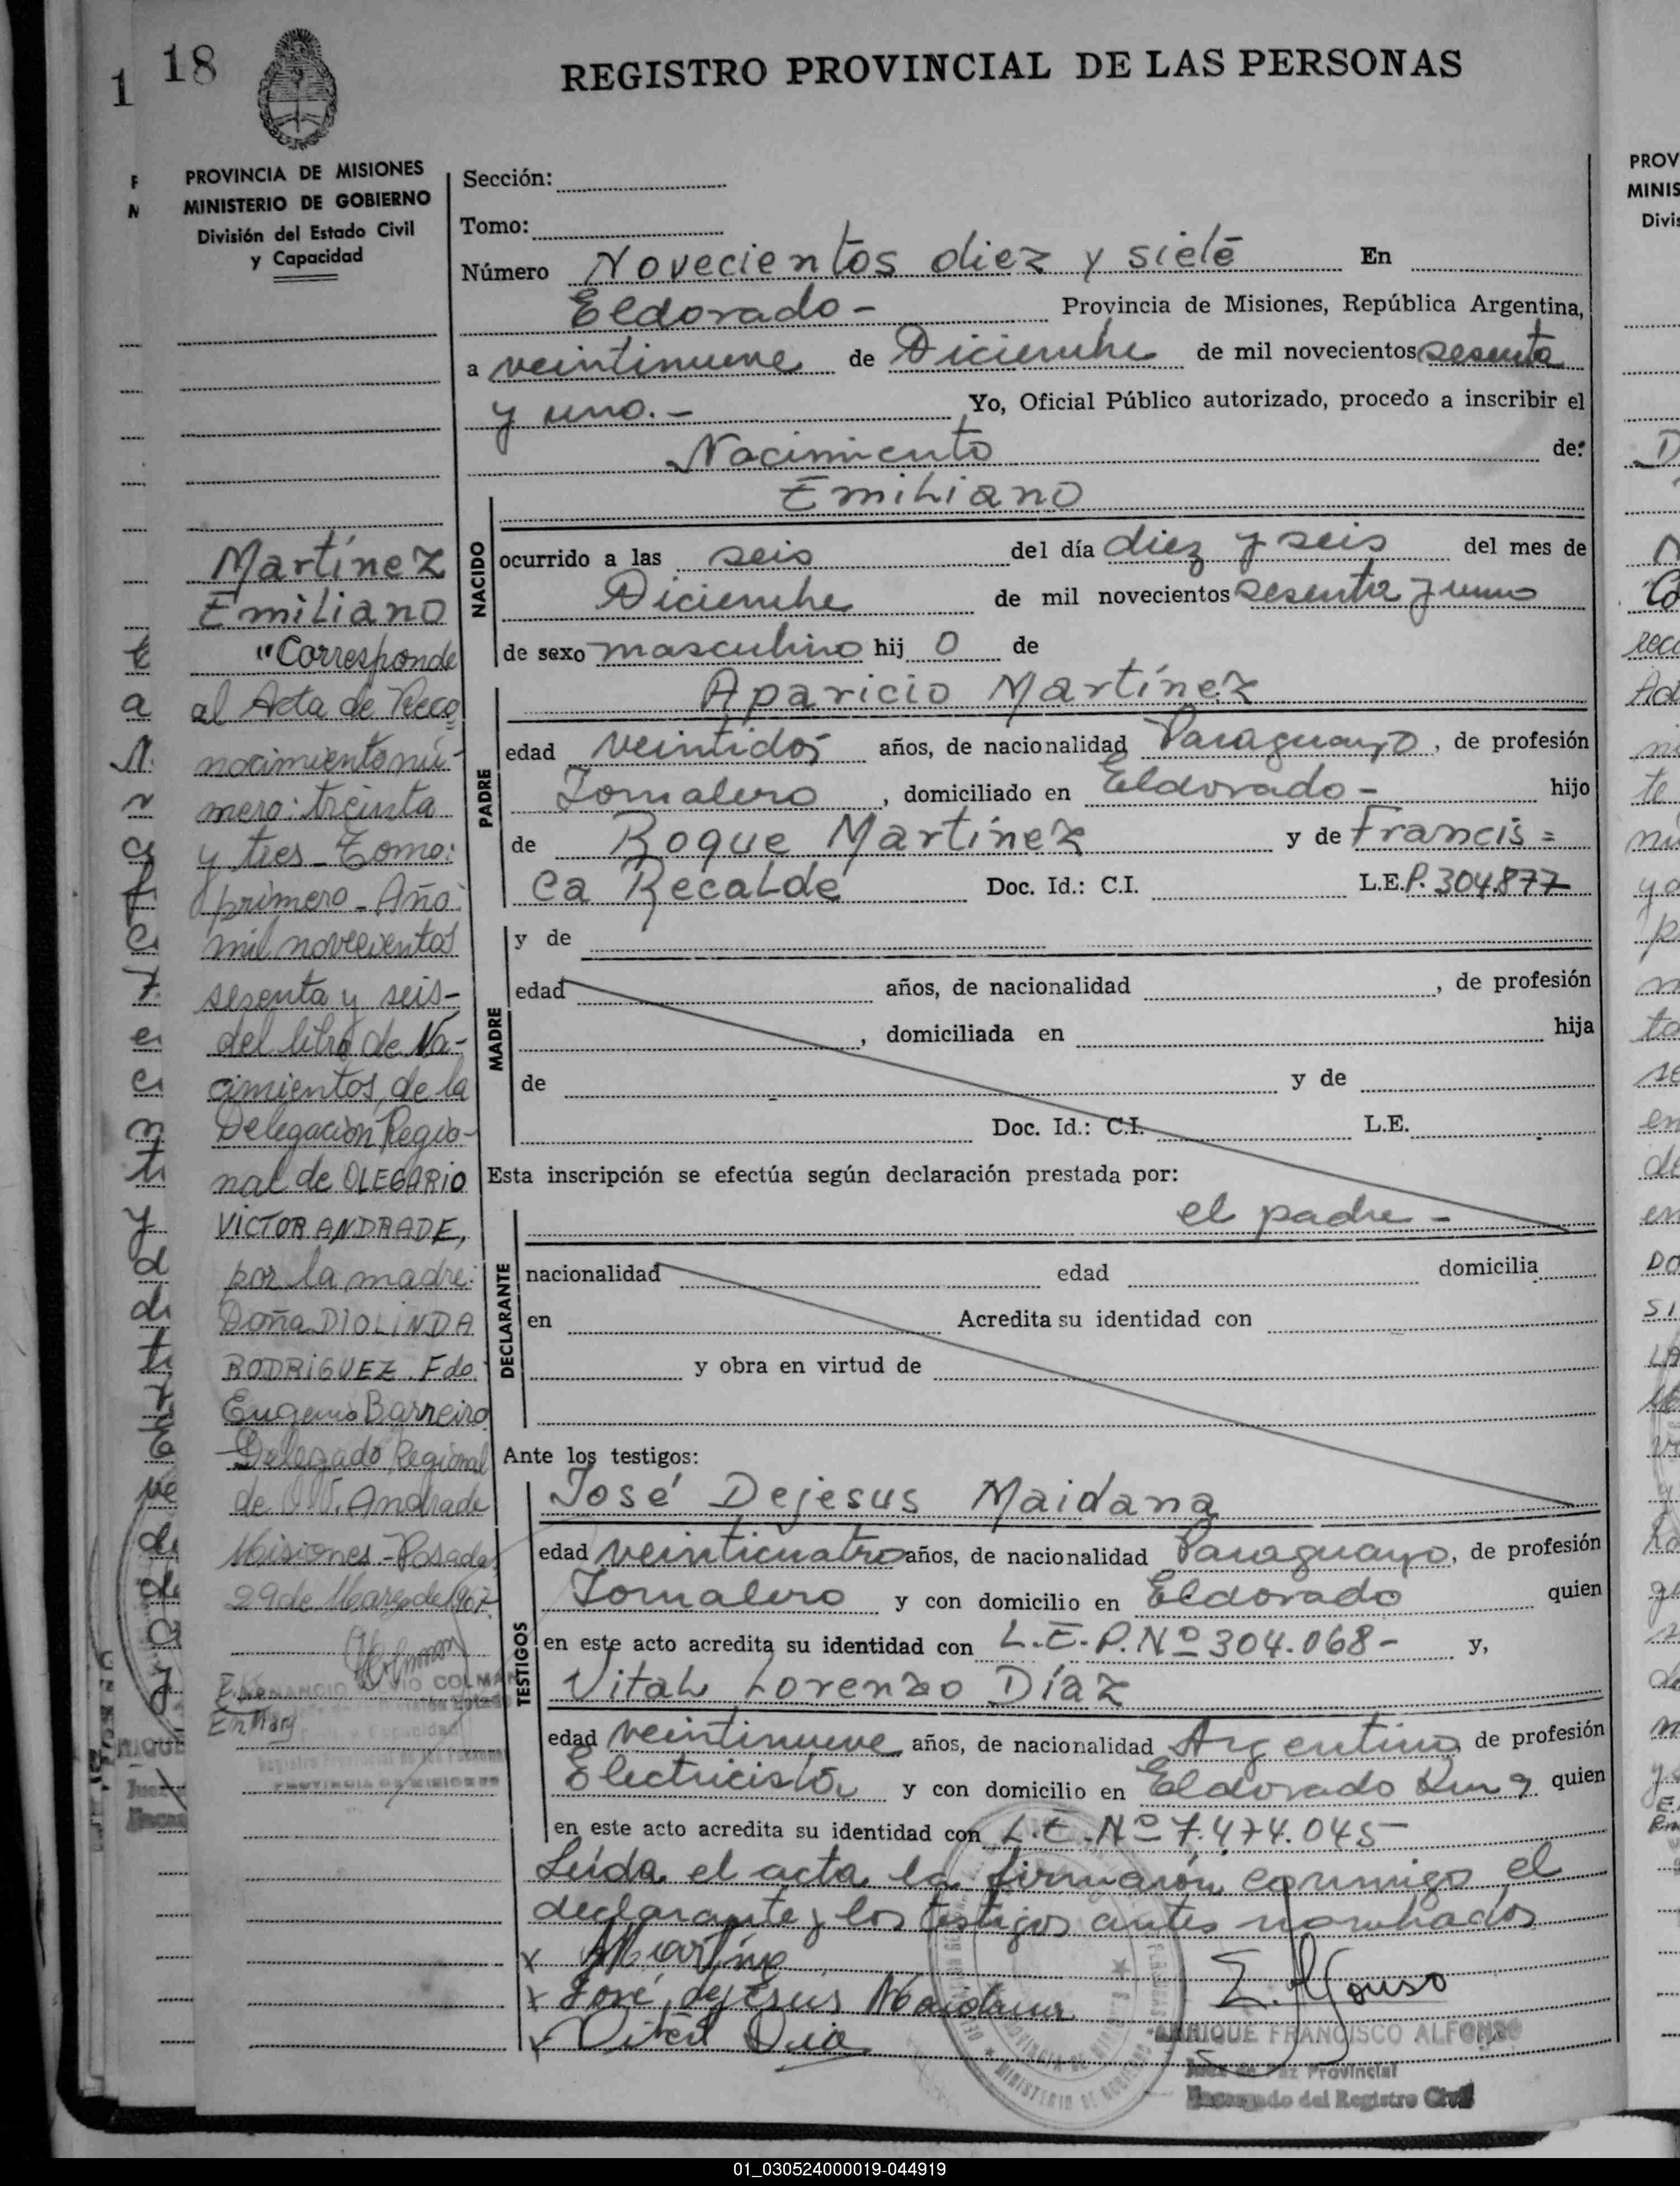 18
REGISTRO PROVINCIAL DE LAS PERSONAS
1
PROVINCIA DE MISIONES
MINISTERIO DE GOBIERNO
División del Estado Civil
y Capacidad
Martínez
Emiliano
"Corresponde
al Acta de Reco
nocimiento nú-
mero: treinta
y tres - Tomo:
primero - Año:
mil novecientos
sesenta y seis-
del libro de Na-
cimientos, de la
Delegación Regio-
nal de OLEGARIO
VICTOR ANDRADE,
por la madre:
Doña DIOLINDA
RODRIGUEZ. Fdo.
Eugenio Barreiro
Delegado Regional
de Andrade
Misiones - Posadas
29 de Marzo de 1967.
COLMAN
PROVINCIA DE MISIONES
Sección:
Tomo:
Número Novecientos diez y siete En
Eldorado - Provincia de Misiones, República Argentina,
a veintinueve de Diciembre de mil novecientos sesenta
y uno.- Yo, Oficial Público autorizado, procedo a inscribir el
Nacimiento de:
NACIDO
Emiliano
ocurrido a las seis del día diez y seis del mes de
Diciembre de mil novecientos sesenta y uno
de sexo masculino hij o de
PADRE
Aparicio Martínez
edad veintidos años, de nacionalidad Paraguayo, de profesión
Jornalero, domiciliado en Eldorado - hijo
de Roque Martínez y de Francis=
ca Recalde Doc. Id.: C.I. L.E.P. 304.877
MADRE
y de
edad años, de nacionalidad , de profesión
, domiciliada en hija
de y de
Doc. Id.: C.I. L.E.
Esta inscripción se efectúa según declaración prestada por:
DECLARANTE
el padre -
nacionalidad edad domicilia
en Acredita su identidad con
y obra en virtud de
Ante los testigos:
TESTIGOS
José Dejesus Maidana
edad veinticuatro años, de nacionalidad Paraguayo, de profesión
Jornalero y con domicilio en Eldorado quien
en este acto acredita su identidad con L.E.P. Nº 304.068- y,
Vital Lorenzo Díaz
edad veintinueve años, de nacionalidad Argentino, de profesión
Electricista y con domicilio en Eldorado Km 9 quien
en este acto acredita su identidad con L.E. Nº 7.474.045-
Leída el acta la firmaron conmigo el
declarante y los testigos antes nombrados
x Martínez
x José dejesus Maidana
x Vital Dia
E. Alfonso
ENRIQUE FRANCISCO ALFONSO
Juez de Paz Provincial
Encargado del Registro Civil
PROV
MINIS
01_030524000019-044919